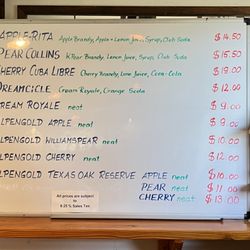 APPLE-RITA Apple Brandy, Apple + Lemon Juice, Syrup, Club Soda $14.50
PEAR COLLINS Pear Brandy, Lemon Juice, Syrup, Club Soda $15.50
CHERRY CUBA LIBRE Cherry Brandy, Lime Juice, Coca-Cola $19.00
DREAMCICLE Cream Royale, Orange Soda $12.00
CREAM ROYALE neat $9.00
ALPENGOLD APPLE neat $9.00
ALPENGOLD WILLIAMSPEAR neat $10.00
ALPENGOLD CHERRY neat $12.00
ALPENGOLD TEXAS OAK RESERVE APPLE neat $10.00
PEAR neat $11.00
CHERRY neat $13.00
All prices are subject
to
8.25 % Sales Tax